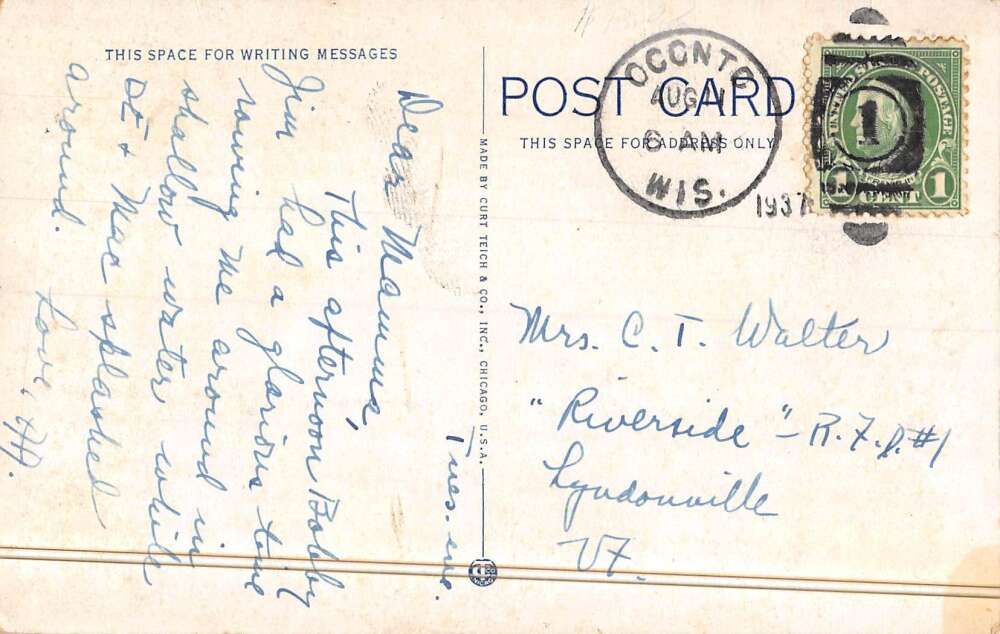 THIS SPACE FOR WRITING MESSAGES
Tues. eve.
Dear Mamma,
This afternoon Bobby
Jim had a glorious time
rowing me around in
shallow water while
& Mac splashed
around.
Love,
MADE BY CURT TEICH & CO., INC., CHICAGO, U.S.A.
POST CARD
THIS SPACE FOR ADDRESS ONLY
OCONTO
AUG 11
AM
WIS.
1937
1
UNITED STATES POSTAGE
1 CENT 1
Mrs. C. T. Walter
"Riverside" - R.F.D. #1
Lyndonville
Vt.